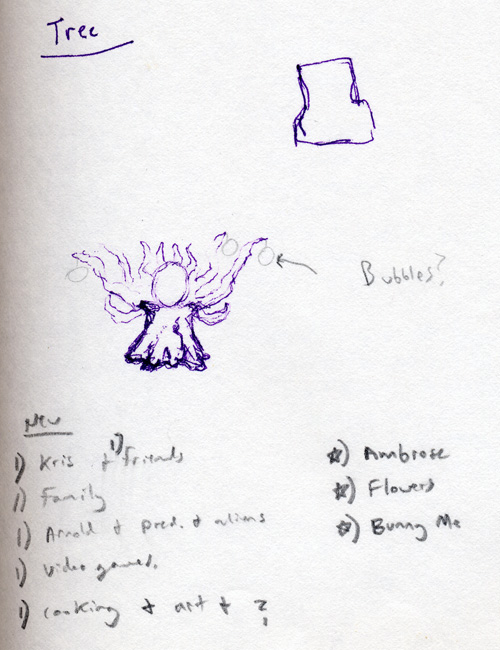 Tree
Bubbles?
New
1) Kris + 1) friends
1) Family
1) Arnold + pred. + aliens
1) Video games.
1) cooking + art + ?
☆) Ambrose
☆) Flowers
☆) Bunny Me